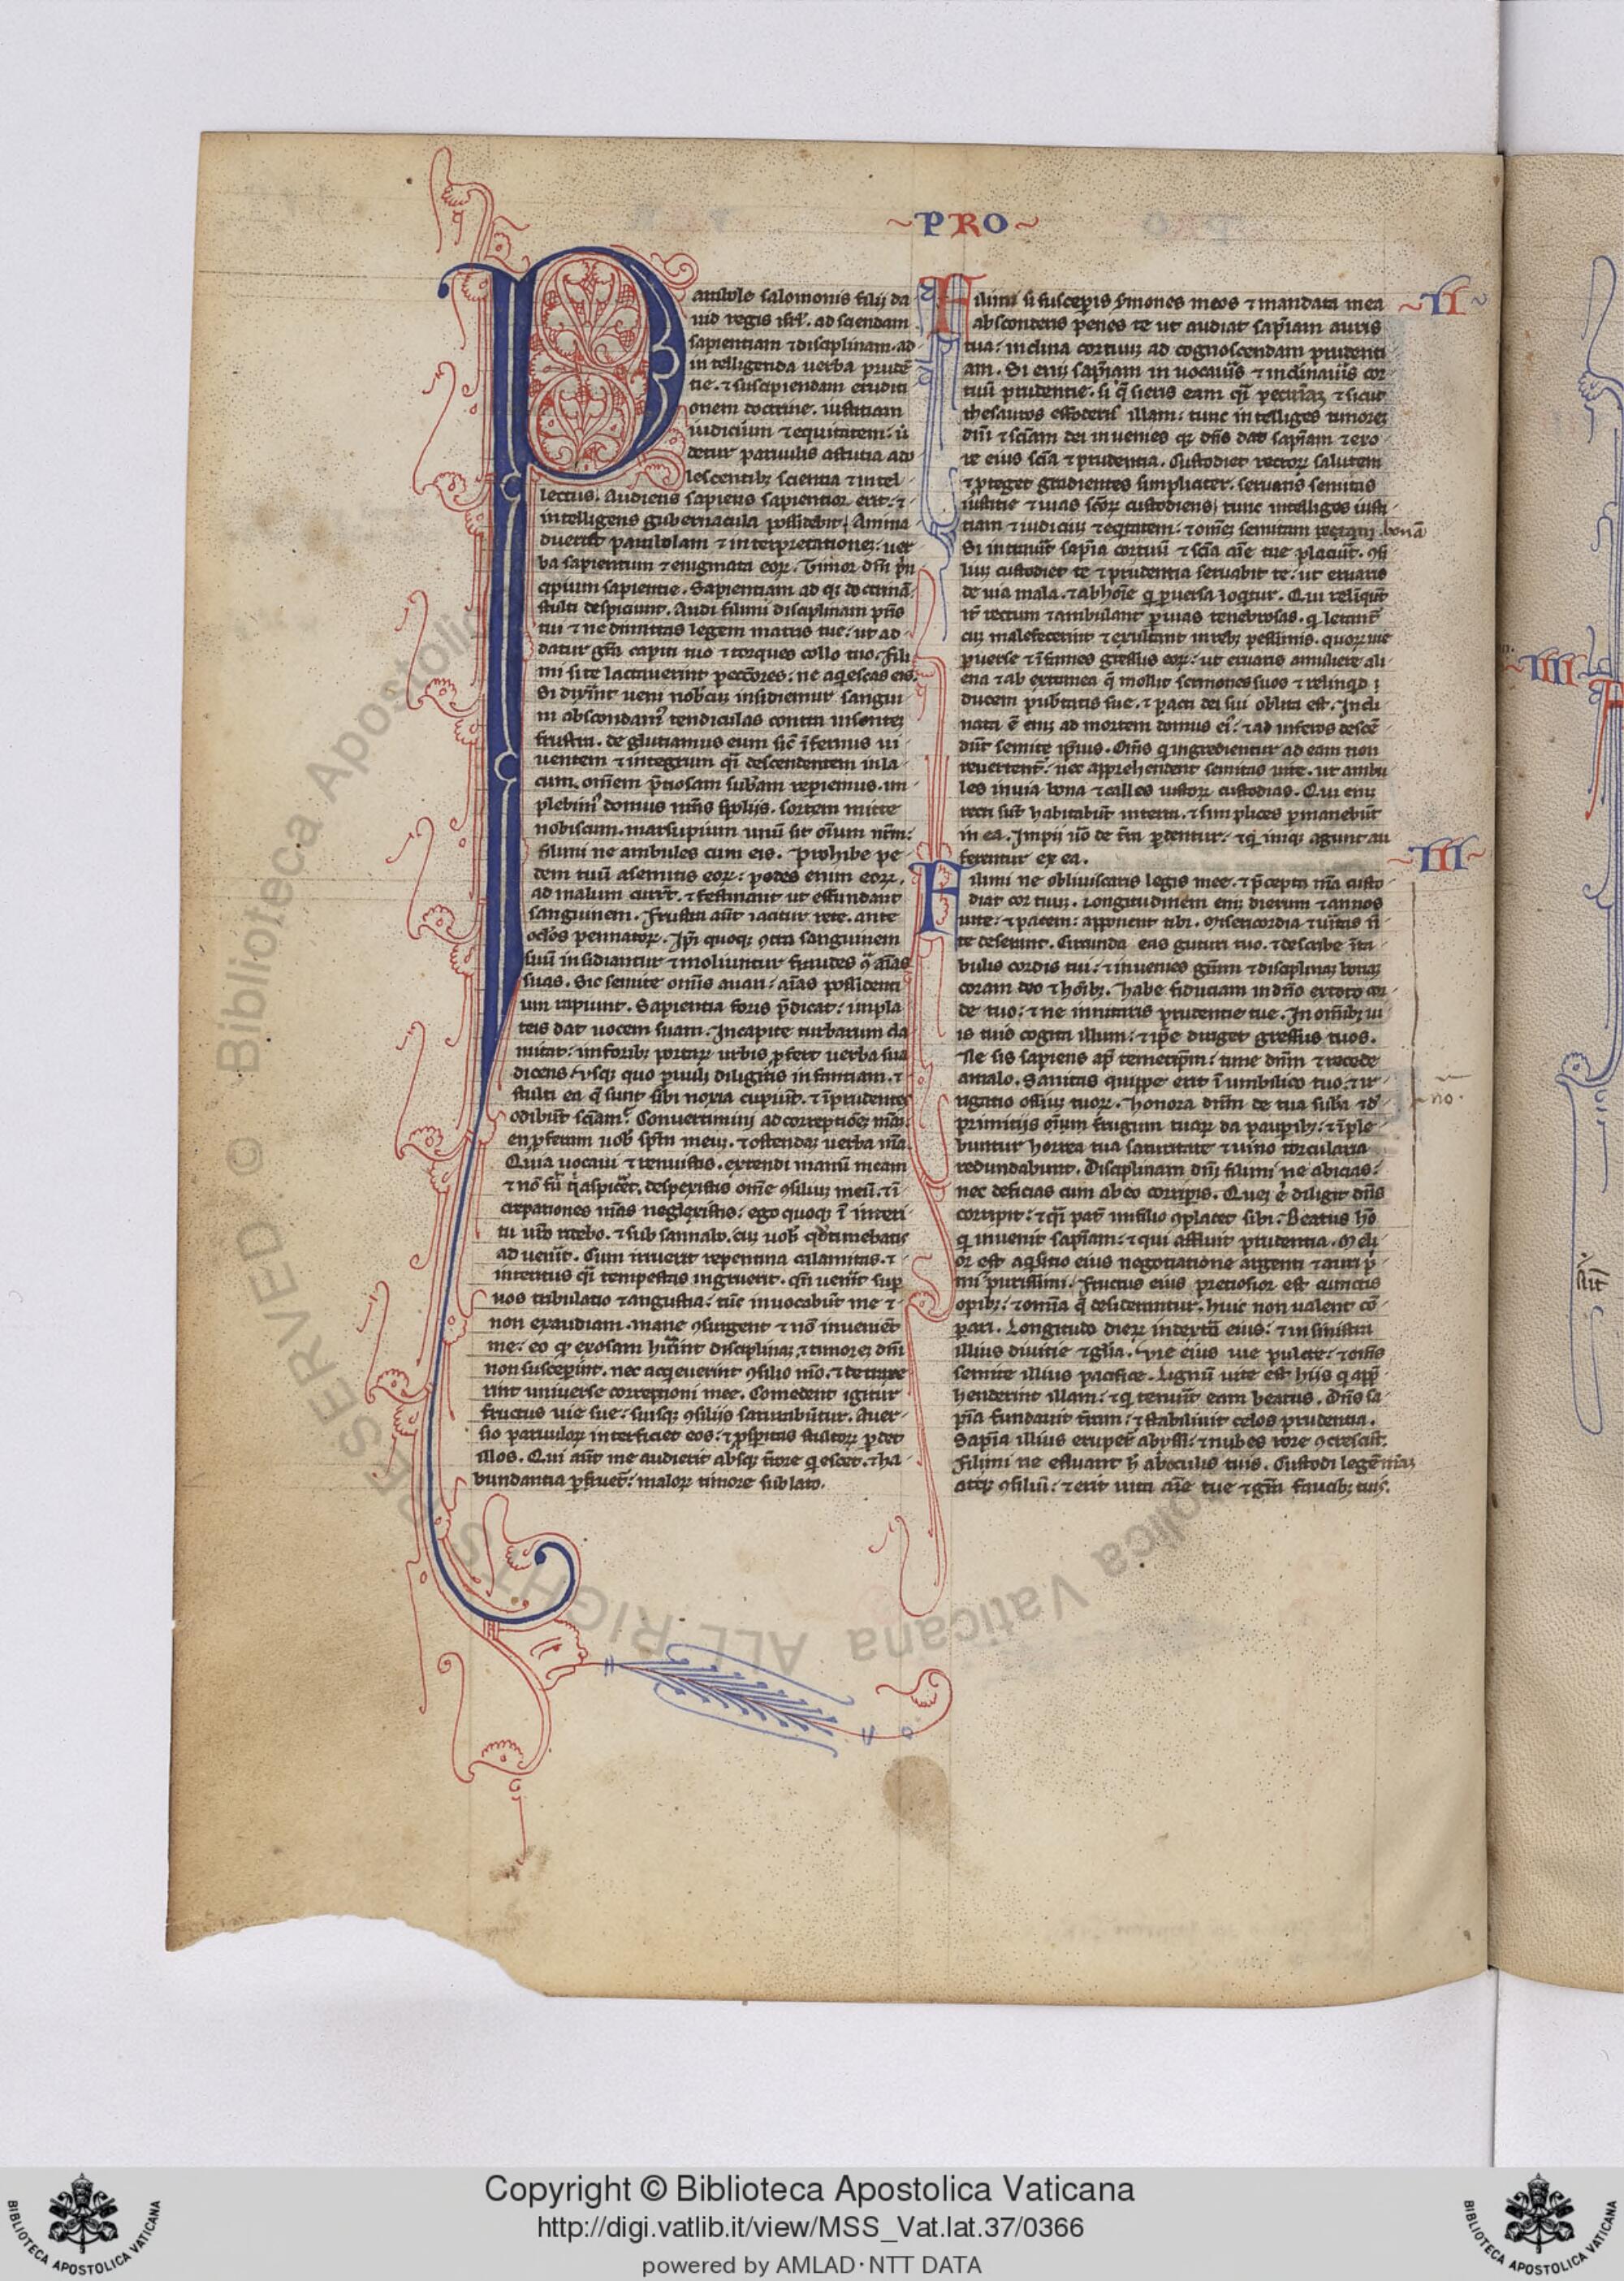 ~PRO~
Parabole salomonis filij da
uid regis isrl'. ad sciendam
sapientiam ⁊ disciplinam. ad
intelligenda uerba prudē
tie. ⁊ suscipiendam eruditi
onem doctrine. iustitiam
iudicium ⁊ equitatem: ut
detur paruulis astutia ado
lescentibꝫ scientia ⁊ intel
lectus. Audiens sapiens sapientior erit: ⁊
intelligens gubernacula possidebit. Anima
duertet parabolam ⁊ interpretationeꝫ: uer
ba sapientum ⁊ enigmata eoꝝ. Timor dnī prin
cipium sapientie. Sapientiam atqꝫ doctrinā
stulti despiciunt. Audi fili mi disciplinam pr̄is
tui ⁊ ne dimittas legem matris tue: ut ad
datur gr̄a capiti tuo ⁊ torques collo tuo. Fili
mi si te lactauerint peccatores: ne acqꝫescas eis.
Si dixerint ueni nobiscū insidiemur sangui
ni abscondamꝰ tendiculas contra insonteꝫ
frustra. deglutiamus eum sic̄ īfernus ui
uentem ⁊ integrum qi descendentem in la
cum. omēm p̄tiosam sub̄am reperiemus. im
plebimꝰ domus nr̄as spolijs. sortem mitte
nobiscum. marsupium unū sit om̄ium nr̄m:
fili mi ne ambules cum eis. Prohibe pe
dem tuū a semitis eoꝝ: pedes enim eoꝝ.
ad malum currūt. ⁊ festinant ut effundant
sanguinem. Frustra aūt iacitur rete. ante
oclos pennatoꝝ. Ipi quoqꝫ ꝯtra sanguinem
suū insidiantur ⁊ moliuntur fraudes ꝯͣ aīas
suas. Sic semite om̄is auari: aīas possidenti
um rapiunt. Sapientia foris p̄dicat: in pla
teis dat uocem suam. In capite turbarum cla
mitat: in foribꝫ portaꝝ urbis ꝓfert uerba sua
dicens. Vsqꝫ quo paruuli diligitis infantiam. ⁊
stulti ea q̄ sunt sibi noxia cupiūt. ⁊ īprudentes
odibūt sciam. Conuertimini ad correptionē meā:
en ꝓferam uob̄ spm̄ meuꝫ. ⁊ ostendaꝫ uerba mea
Quia uocaui ⁊ renuistis. extendi manū meam
⁊ nō fuit qi aspiceret. despexistis om̄e ꝯsiliuꝫ meū. ⁊ ī
crepationes meas neglexistis: ego quoqꝫ ī interi
tu uro ridebo. ⁊ subsannabo. cuꝫ uob̄ qd timebatis
aduenit. Cum irruerit repentina calamitas. ⁊
interitus qi tempestas ingruerit. qn̄ uenit sup
uos tribulatio ⁊ angustia: tūc inuocabūt me ⁊
non exaudiam. mane ꝯsurgent ⁊ nō inueniēt
me: eo qꝫ exosam habuerint disciplinaꝫ ⁊ timoreꝫ dnī
non susceperint. nec acqꝫeuerint ꝯsilio meo. ⁊ detraxe
rint uniuerse correptioni mee. Comedent igitur
fructus uie sue: suisqꝫ ꝯsilijs saturabuntur. Auer
sio paruuloꝝ interficiet eos: ⁊ ꝓsperitas stultoꝝ ꝑdet
illos. Qui aūt me audierit absqꝫ t̄rore qꝫescet. ⁊ ha
bundantia ꝑfruet̄: maloꝝ timore sublato.
~II~
Fili mi si susceperis sermones meos ⁊ mandata mea
absconderis penes te ut audiat sapiam auris
tua: inclina cor tuuꝫ ad cognoscendam prudenti
am. Si enī sapiam inuocaueris ⁊ inclinaueris cor
tuū prudentie. si q̄sieris eam qi pecuniaꝫ ⁊ sicut
thesauros effoderis illam: tunc intelliges timoreꝫ
dnī ⁊ sciam dei inuenies qꝫ dn̄s dat sapiam ⁊ ex o
re eius scia ⁊ prudentia. Custodiet rectoꝝ salutem
⁊ ꝓteget gradientes simpliciter. seruans semitas
iustitie ⁊ uias scoꝝ custodiens. tunc intelliges iusti
tiam ⁊ iudiciū ⁊ eqꝫtatem: ⁊ omēꝫ semitam bonā
Si intrauit sapia cor tuū ⁊ scia aīe tue placuit. ꝯsi
liuꝫ custodiet te ⁊ prudentia seruabit te: ut eruaris
de uia mala. ⁊ ab hoīe q ꝑuersa loqꝫtur. Qui relinqꝫt
it̄ rectum ⁊ ambulant ꝑ uias tenebrosas. q letant̄
cuꝫ malefecerint ⁊ exultant in rebꝫ pessimis. quoꝝ uie
ꝑuerse ⁊ īfames gressus eoꝝ: ut eruaris a muliere ali
ena ⁊ ab extranea q̄ mollit sermones suos ⁊ relinqꝫt
ducem pubertatis sue. ⁊ pacti dei sui oblita est. Incli
nata ē enī ad mortem domus eiꝰ: ⁊ ad inferos descē
dūt semite ipius. Om̄s q ingredientur ad eam non
reuertent̄: nec apprehendent semitas uite. ut ambu
les in uia bona ⁊ calles iustoꝝ custodias. Qui enī
recti sūt habitabūt in terra. ⁊ simplices ꝑmanebūt
in ea. Impij uō de t̄ra ꝑdentur: ⁊ q iniqꝫ agunt au
ferentur ex ea.
~III~
Fili mi ne obliuiscaris legis mee. ⁊ p̄cepta mea custo
diat cor tuuꝫ. Longitudinem enī dierum ⁊ annos
uite: ⁊ pacem: apponent tibi. Misericordia ⁊ ueritas n̄
te deserant. Circunda eas gutturi tuo. ⁊ describe ī ta
bulis cordis tui: ⁊ inuenies gr̄am ⁊ disciplinaꝫ bonaꝫ
coram deo ⁊ hoībꝫ. Habe fiduciam in dn̄o ex toto cor
de tuo: ⁊ ne innitaris prudentie tue. In om̄ibꝫ ui
is tuis cogita illum: ⁊ ipe diriget gressus tuos.
Ne sis sapiens ap̄ temetipm: time dnm̄ ⁊ recede
a malo. Sanitas quippe erit ī umbilico tuo. ⁊ ir
rigatio ossiuꝫ tuoꝝ. Honora dnm̄ de tua sub̄a ⁊ d̄
no.
primitijs om̄ium frugum tuaꝝ da pauperibꝫ: ⁊ īple
buntur horrea tua saturitate ⁊ uino torcularia
redundabunt. Disciplinam dnī fili mi ne abicias:
nec deficias cum ab eo corriperis. Queꝫ ē diligit dn̄s
corripit: ⁊ qi pat̄ in filio ꝯplacet sibi. Beatus hō
q inuenit sapiam: ⁊ qui affluit prudentia. Meli
or est aqꝫsitio eius negotiatione argenti ⁊ auri p
mi purissimi. Fructus eius pretiosior est cunctis
opibꝫ: ⁊ om̄ia q̄ desiderantur. huic non ualent cō
pari. Longitudo dieꝝ in dextra eius: ⁊ in sinistra
illius diuitie ⁊ glia. Vie eius uie pulcre: ⁊ om̄s
semite illius pacifice. Lignū uite est hijs q appre
henderint illam: ⁊ q tenuerit eam beatus. Dn̄s sa
pia fundauit t̄ram: ⁊ stabiliuit celos prudentia.
Sapia illius eruper̄t abyssi: ⁊ nubes rore ꝯcrescūt.
Fili mi ne effluant h̄ ab oculis tuis. Custodi legē meaꝫ
atqꝫ ꝯsiliū: ⁊ erit uita aīe tue ⁊ gr̄a faucibꝫ tuis.
~IIII~
© Biblioteca Apostolica Vaticana ALL RIGHTS RESERVED
Copyright © Biblioteca Apostolica Vaticana
http://digi.vatlib.it/view/MSS_Vat.lat.37/0366
powered by AMLAD·NTT DATA
BIBLIOTECA APOSTOLICA VATICANA
BIBLIOTECA APOSTOLICA VATICANA